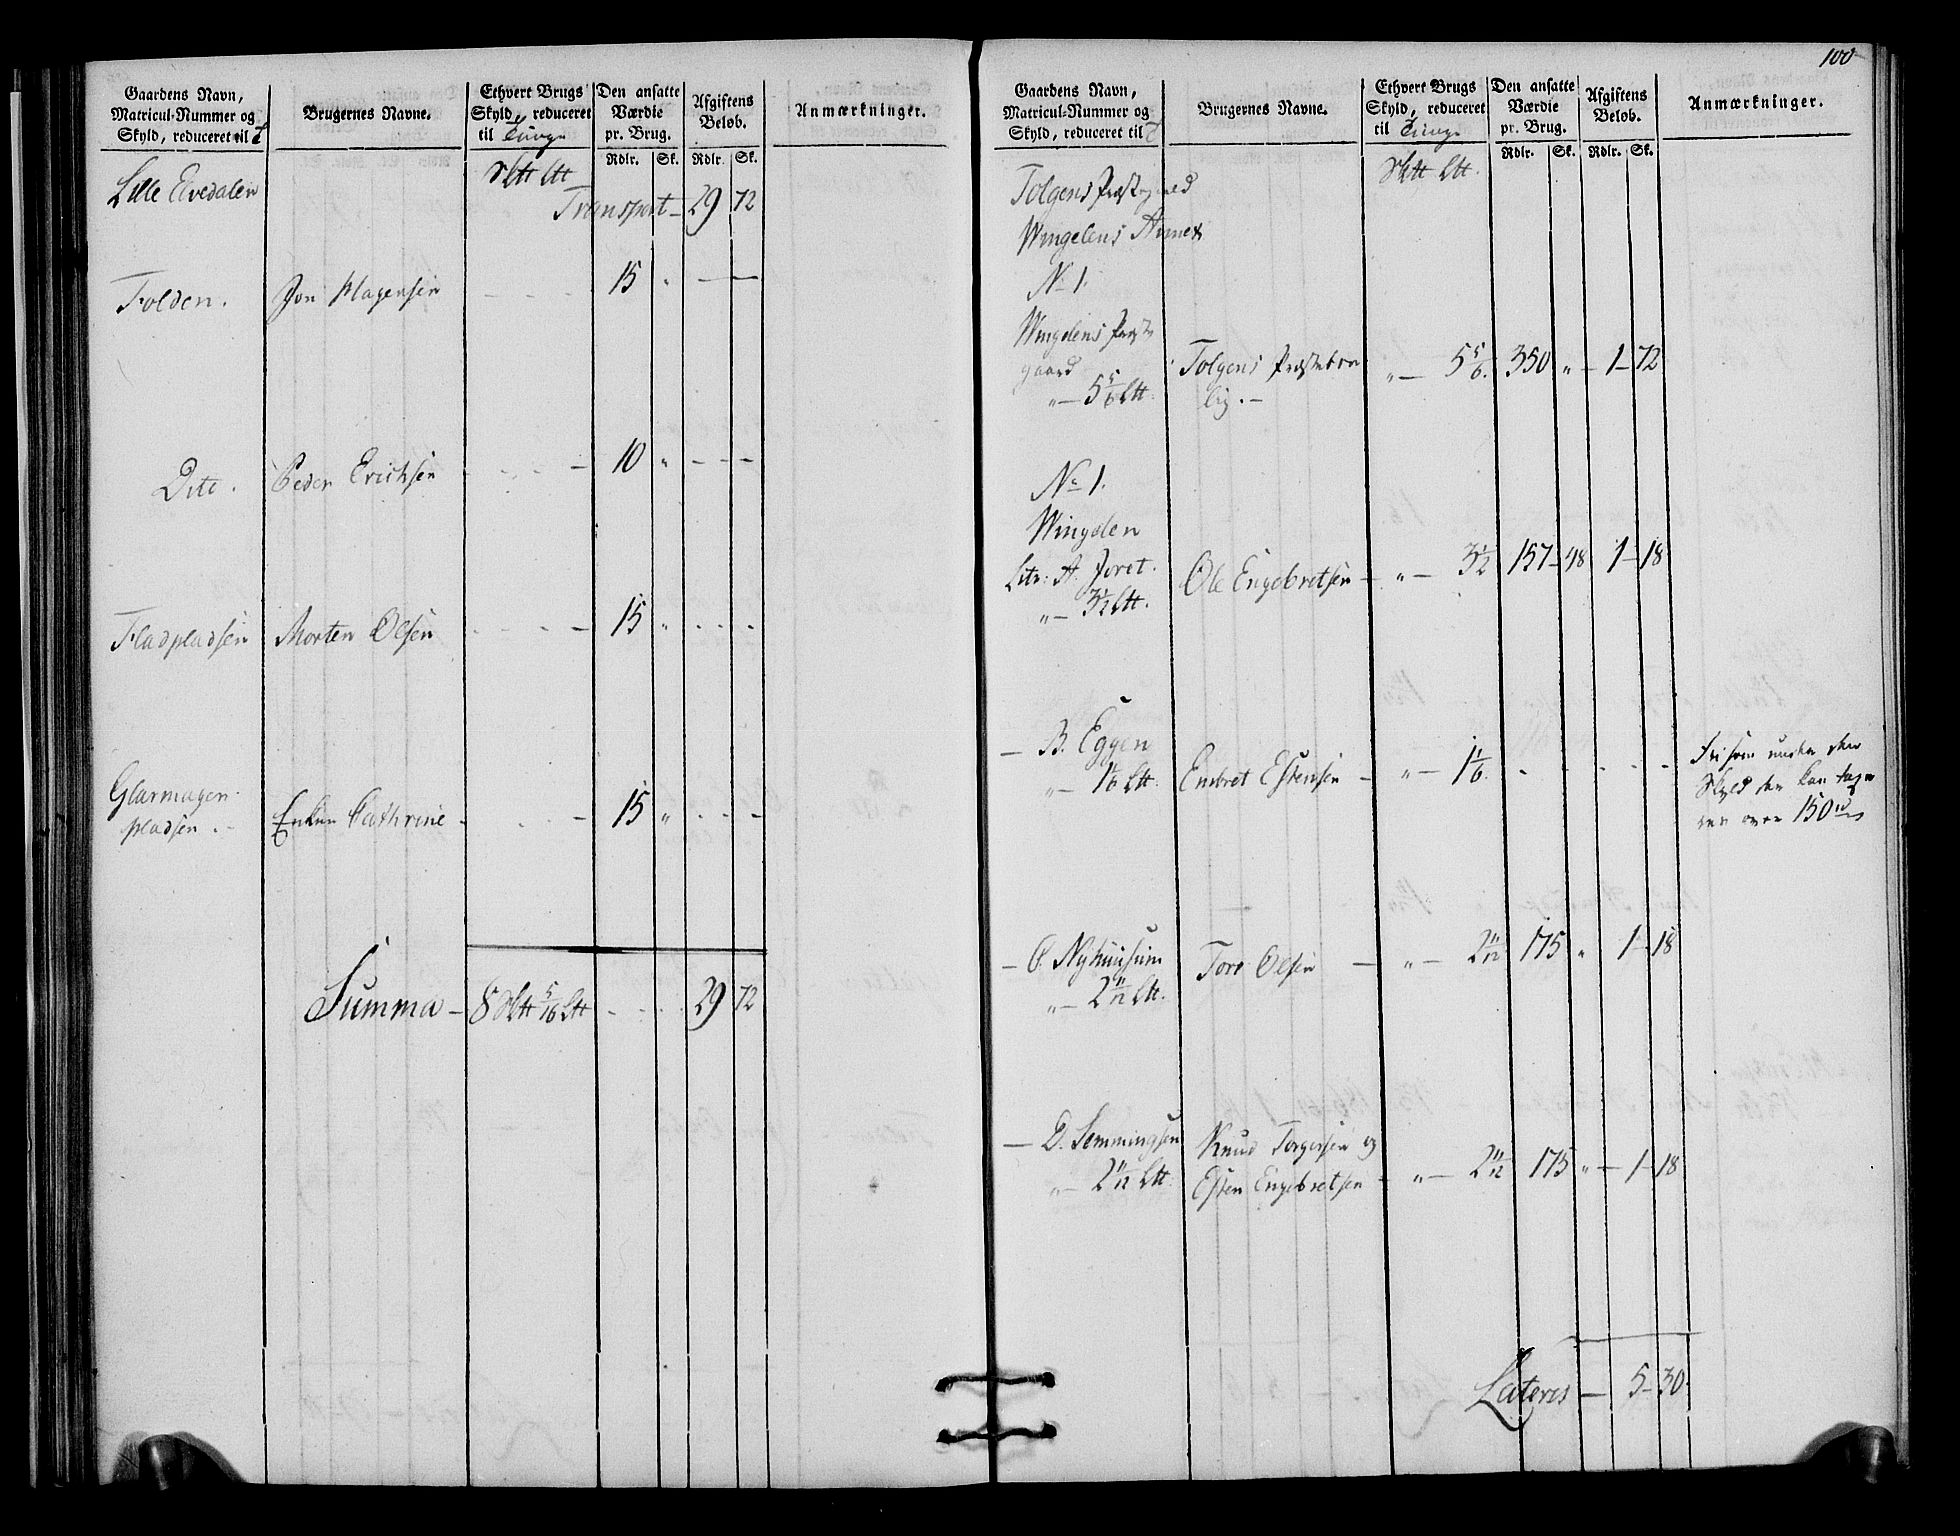 Gaardens Navn,
Matricul-Nummer og
Skyld, reduceret til
Brugernes Navne.
Ethvert Brugs
Skyld, reduceret
til Tunge
Den ansatte
Værdie
pr. Brug.
Rdlr. Sk.
Afgiftens
Beløb.
Rdlr. Sk.
Anmærkninger.
Lille Elvedalen
Transport – 29 72
Folden. Jon Hagensen - - - 15 " - —
Dito. Peder Erichsen - - - - 10 " - - -
Fladpladsen Morten Olsen - - - - 15 " - - -
Glarmager-
pladsen. - Enken Cathrine - - - - 15 " - - -
Summa – 8 5/16 - - - 29 72
100
Gaardens Navn,
Matricul-Nummer og
Skyld, reduceret til
Brugernes Navne.
Ethvert Brugs
Skyld, reduceret
til Tunge
Den ansatte
Værdie
pr. Brug.
Rdlr. Sk.
Afgiftens
Beløb.
Rdlr. Sk.
Anmærkninger.
Tolgens Præstegield
Wingelens Annex
No 1.
Wingelens Præste
gaard
" – 5 5/6 Ltt.
Tolgens Præstebo
lig. –
" – 5 5/6. 350 " – 1 – 72
No 1.
Wingelen
Litr: A. Joret.
" – 3 1/2 Ltt.
Ole Engebretsen – " – 3 1/2 157 – 48 1 – 18
– B. Eggen
" – 1 1/6 Ltt.
Embret Estensen – " – 1 1/6. - - - -
Fri som under den
Skyld der kan
over 150
– C. Nyhuusum
" – 2 11/12 Ltt.
Tore Olsen – " – 2 11/12 175 " 1 – 18
– D. Semmingsen
" – 2 11/12 Ltt.
Knud Torgersen og
Esten Engebretsen – " – 2 11/12 175 " – 1 – 18
Lateris – 5 – 30.